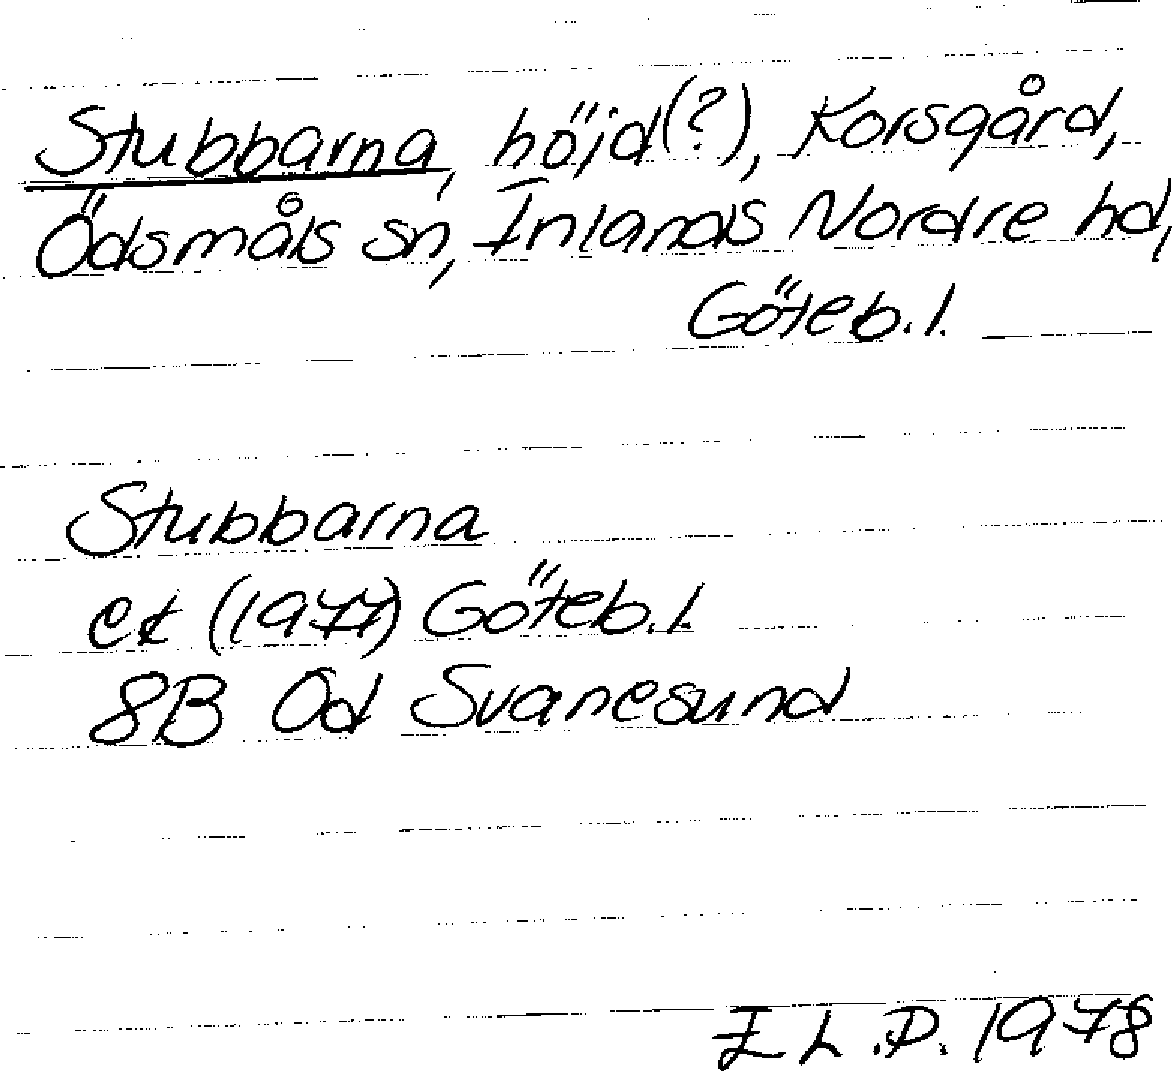 Stubbarna, höjd(?), Korsgård,
Ödsmåls sn, Inlands Nordre hd,
Göteb. l.
Stubbarna
ek (1977) Göteb. l.
8B Od Svanesund
1978